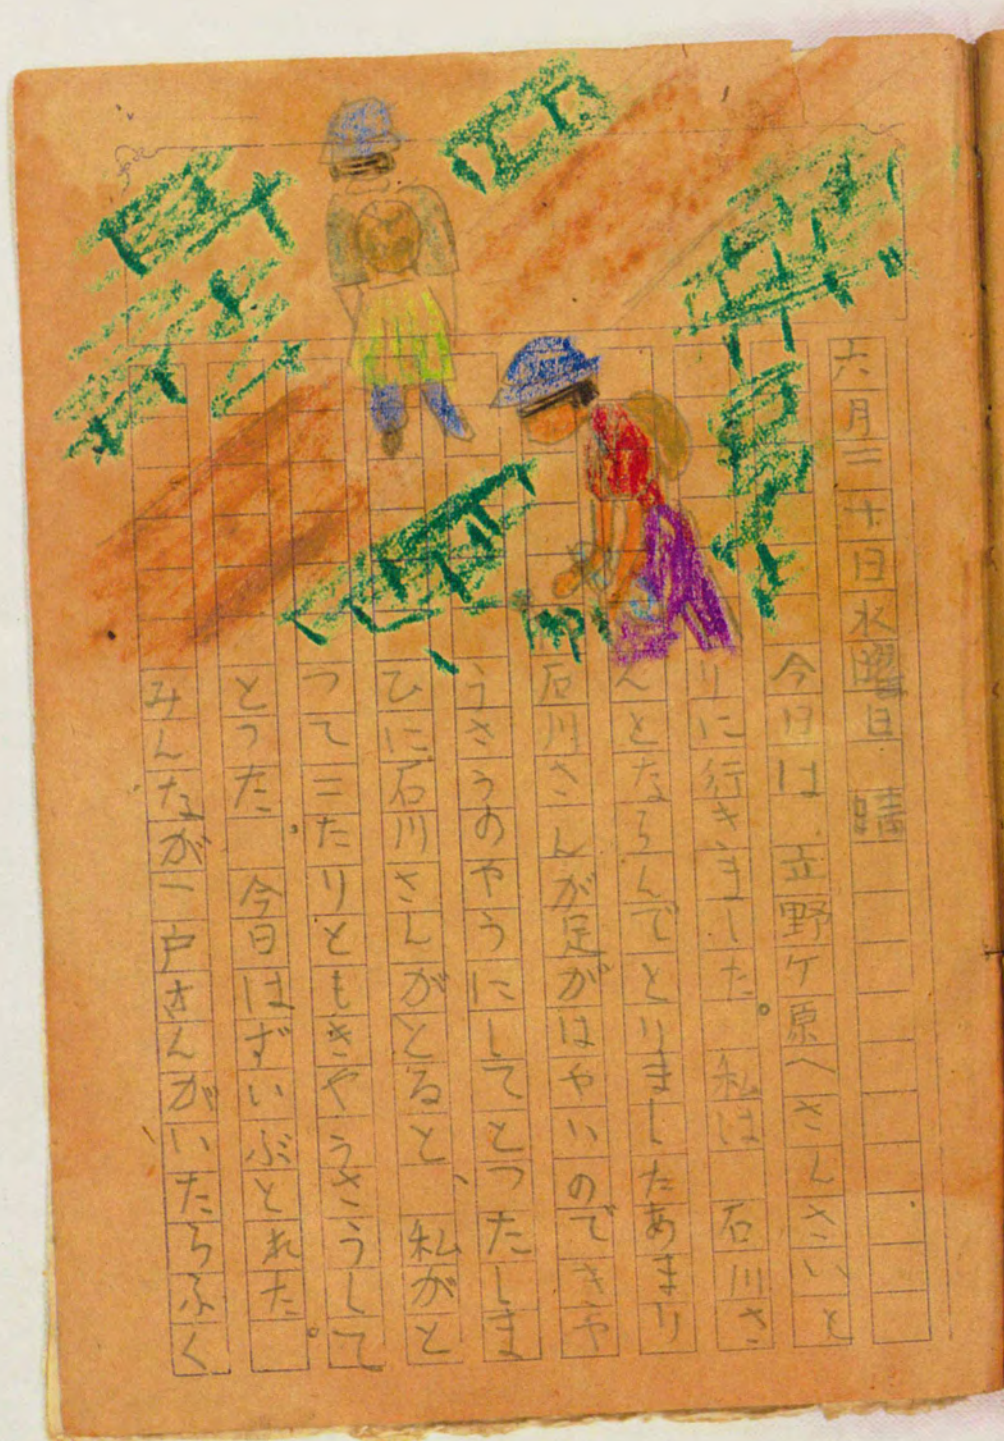 六月二十日水曜日 晴
今日は 立野ケ原へさんさいと
りに行きました。 私は 石川さ
んとならんでとりましたあまり
石川さんが足がはやいのできや
うさうのやうにしてとつたしま
ひに石川さんがとると、私がと
つて二たりともきやうさうして
とつた。 今日はずいぶとれた。
みんなが一戸さんがいたらふく